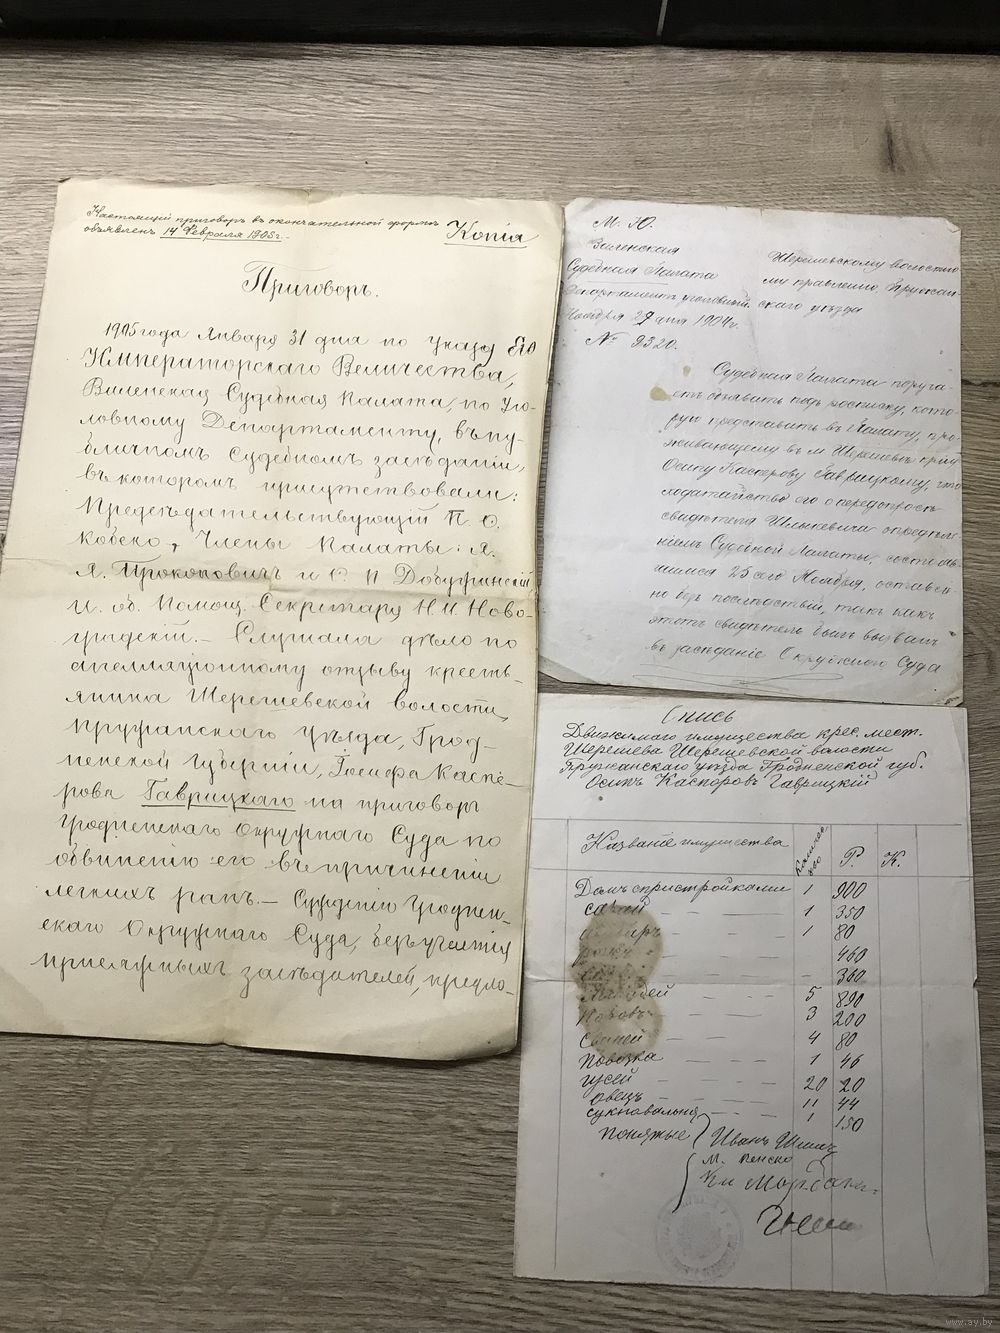 Настоящій приговоръ въ окончательной формѣ
объявленъ 14 Февраля 1905 г.
Копія
Приговоръ.
1905 года Января 31 дня по указу Его
Императорскаго Величества,
Виленская Судебная Палата, по Уго-
ловному Департаменту, въ пу-
бличномъ судебномъ засѣданіи,
въ которомъ присутствовали:
Предсѣдательствующій П. О.
Кобеко, Члены Палаты: Я.
Я. Прокоповичъ и С. П. Добугинскій
И. об. Помощ. Секретаря Н. И. Ново-
градскій. — Слушала дѣло по
апелляціонному отзыву кресть-
янина Шерешевской волости,
Пружанскаго уѣзда, Грод-
ненской губерніи, Іосифа Каспе-
рова Гаврицкаго на приговоръ
Гродненскаго Окружнаго Суда по
обвиненію его въ причиненіи
легкихъ ранъ. — Сужденіи Гроднен-
скаго Окружнаго Суда, безъ участія
присяжныхъ засѣдателей, предло-
М. Ю.
Виленская
Судебная Палата
Департаментъ уголовный
Ноября 27 дня 1904 г.
№ 2320.
Шерешевскому волостно
му правленію Пружан-
скаго уѣзда
Судебная Палата поруча-
етъ объявить подъ росписку, кото-
рую представить въ Палату, про-
живающему въ м. Шерешевѣ кр-ну
Осипу Касперову Гаврицкому, что
ходатайство его о передопросѣ
свидѣтеля Шлыкевича опредѣле
ніемъ Судебной Палаты, состояв-
шимся 25 сего Ноября, оставле-
но безъ послѣдствій, такъ какъ
этотъ свидѣтель былъ вызванъ
въ засѣданіе Окружнаго Суда
Опись
Движимаго имущества крес. мест.
Шерешева Шерешевской волости
Пружанскаго уѣзда Гродненской губ.
Осипъ Касперовъ Гаврицкій
Названіе имущества Количес тво Р. К.
Домъ спристройками 1 900
сарай 1 350
амбаръ 1 80
460
300
5 890
Коровъ 3 200
Свиней 4 80
Повозка 1 46
гусей 20 20
овецъ 11 44
сукновальня 1 150
Понятые Иванъ
М.